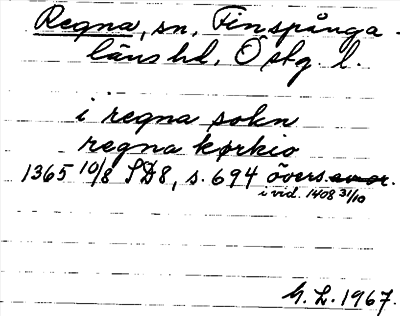 Regna, sn, Finspånga
läns hd, Östg. l.
i regna sokn
regna kørkio
1365 10/8 SD8, s. 694 övers.
i vid. 1408 31/10
G. L. 1967.